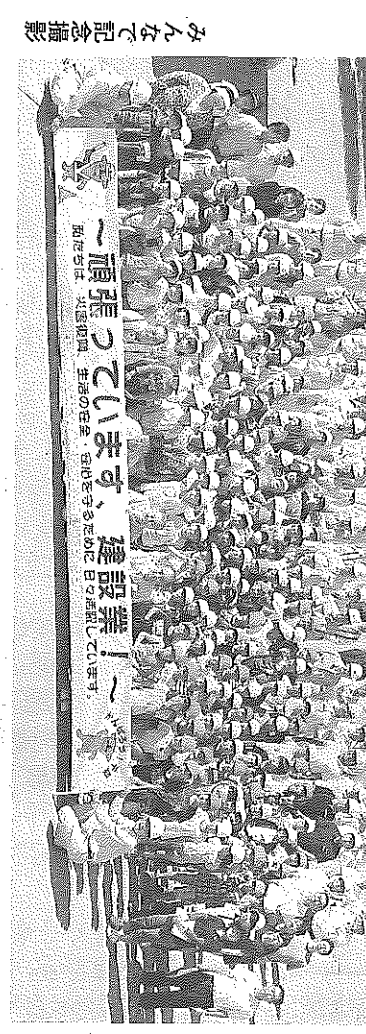 みんなで記念撮影
〜頑張っています、建設業！〜
私たちは、災害復旧、生活の安全、安心を守るために日々活動しています。